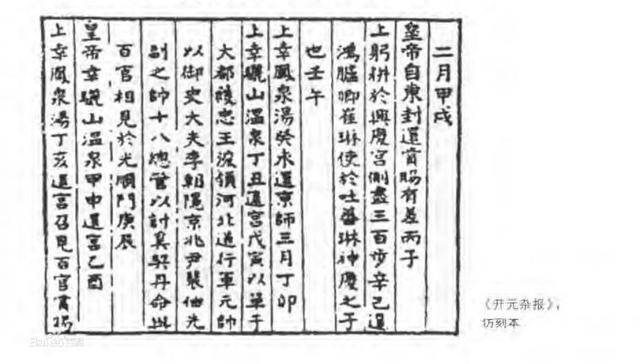 二月甲戌
皇帝自東封還賞賜有差丙子
上躬耕於興慶宮側盡三百步辛巳遣
鴻臚卿崔琳使於吐蕃琳神慶之子
也壬午
上幸鳳泉湯癸未還京師三月丁卯
上幸驪山溫泉丁丑還宮戊寅以單于
大都護忠王浚領河北道行軍元帥
以御史大夫李朝隱京兆尹裴伷先
副之帥十八總管以討奚契丹命與
百官相見於光順門庚辰
皇帝幸驪山溫泉甲申還宮己酉
上幸鳳泉湯丁亥還宮召見百官賞賜
《开元杂报》,
仿刻本
Baidu百科